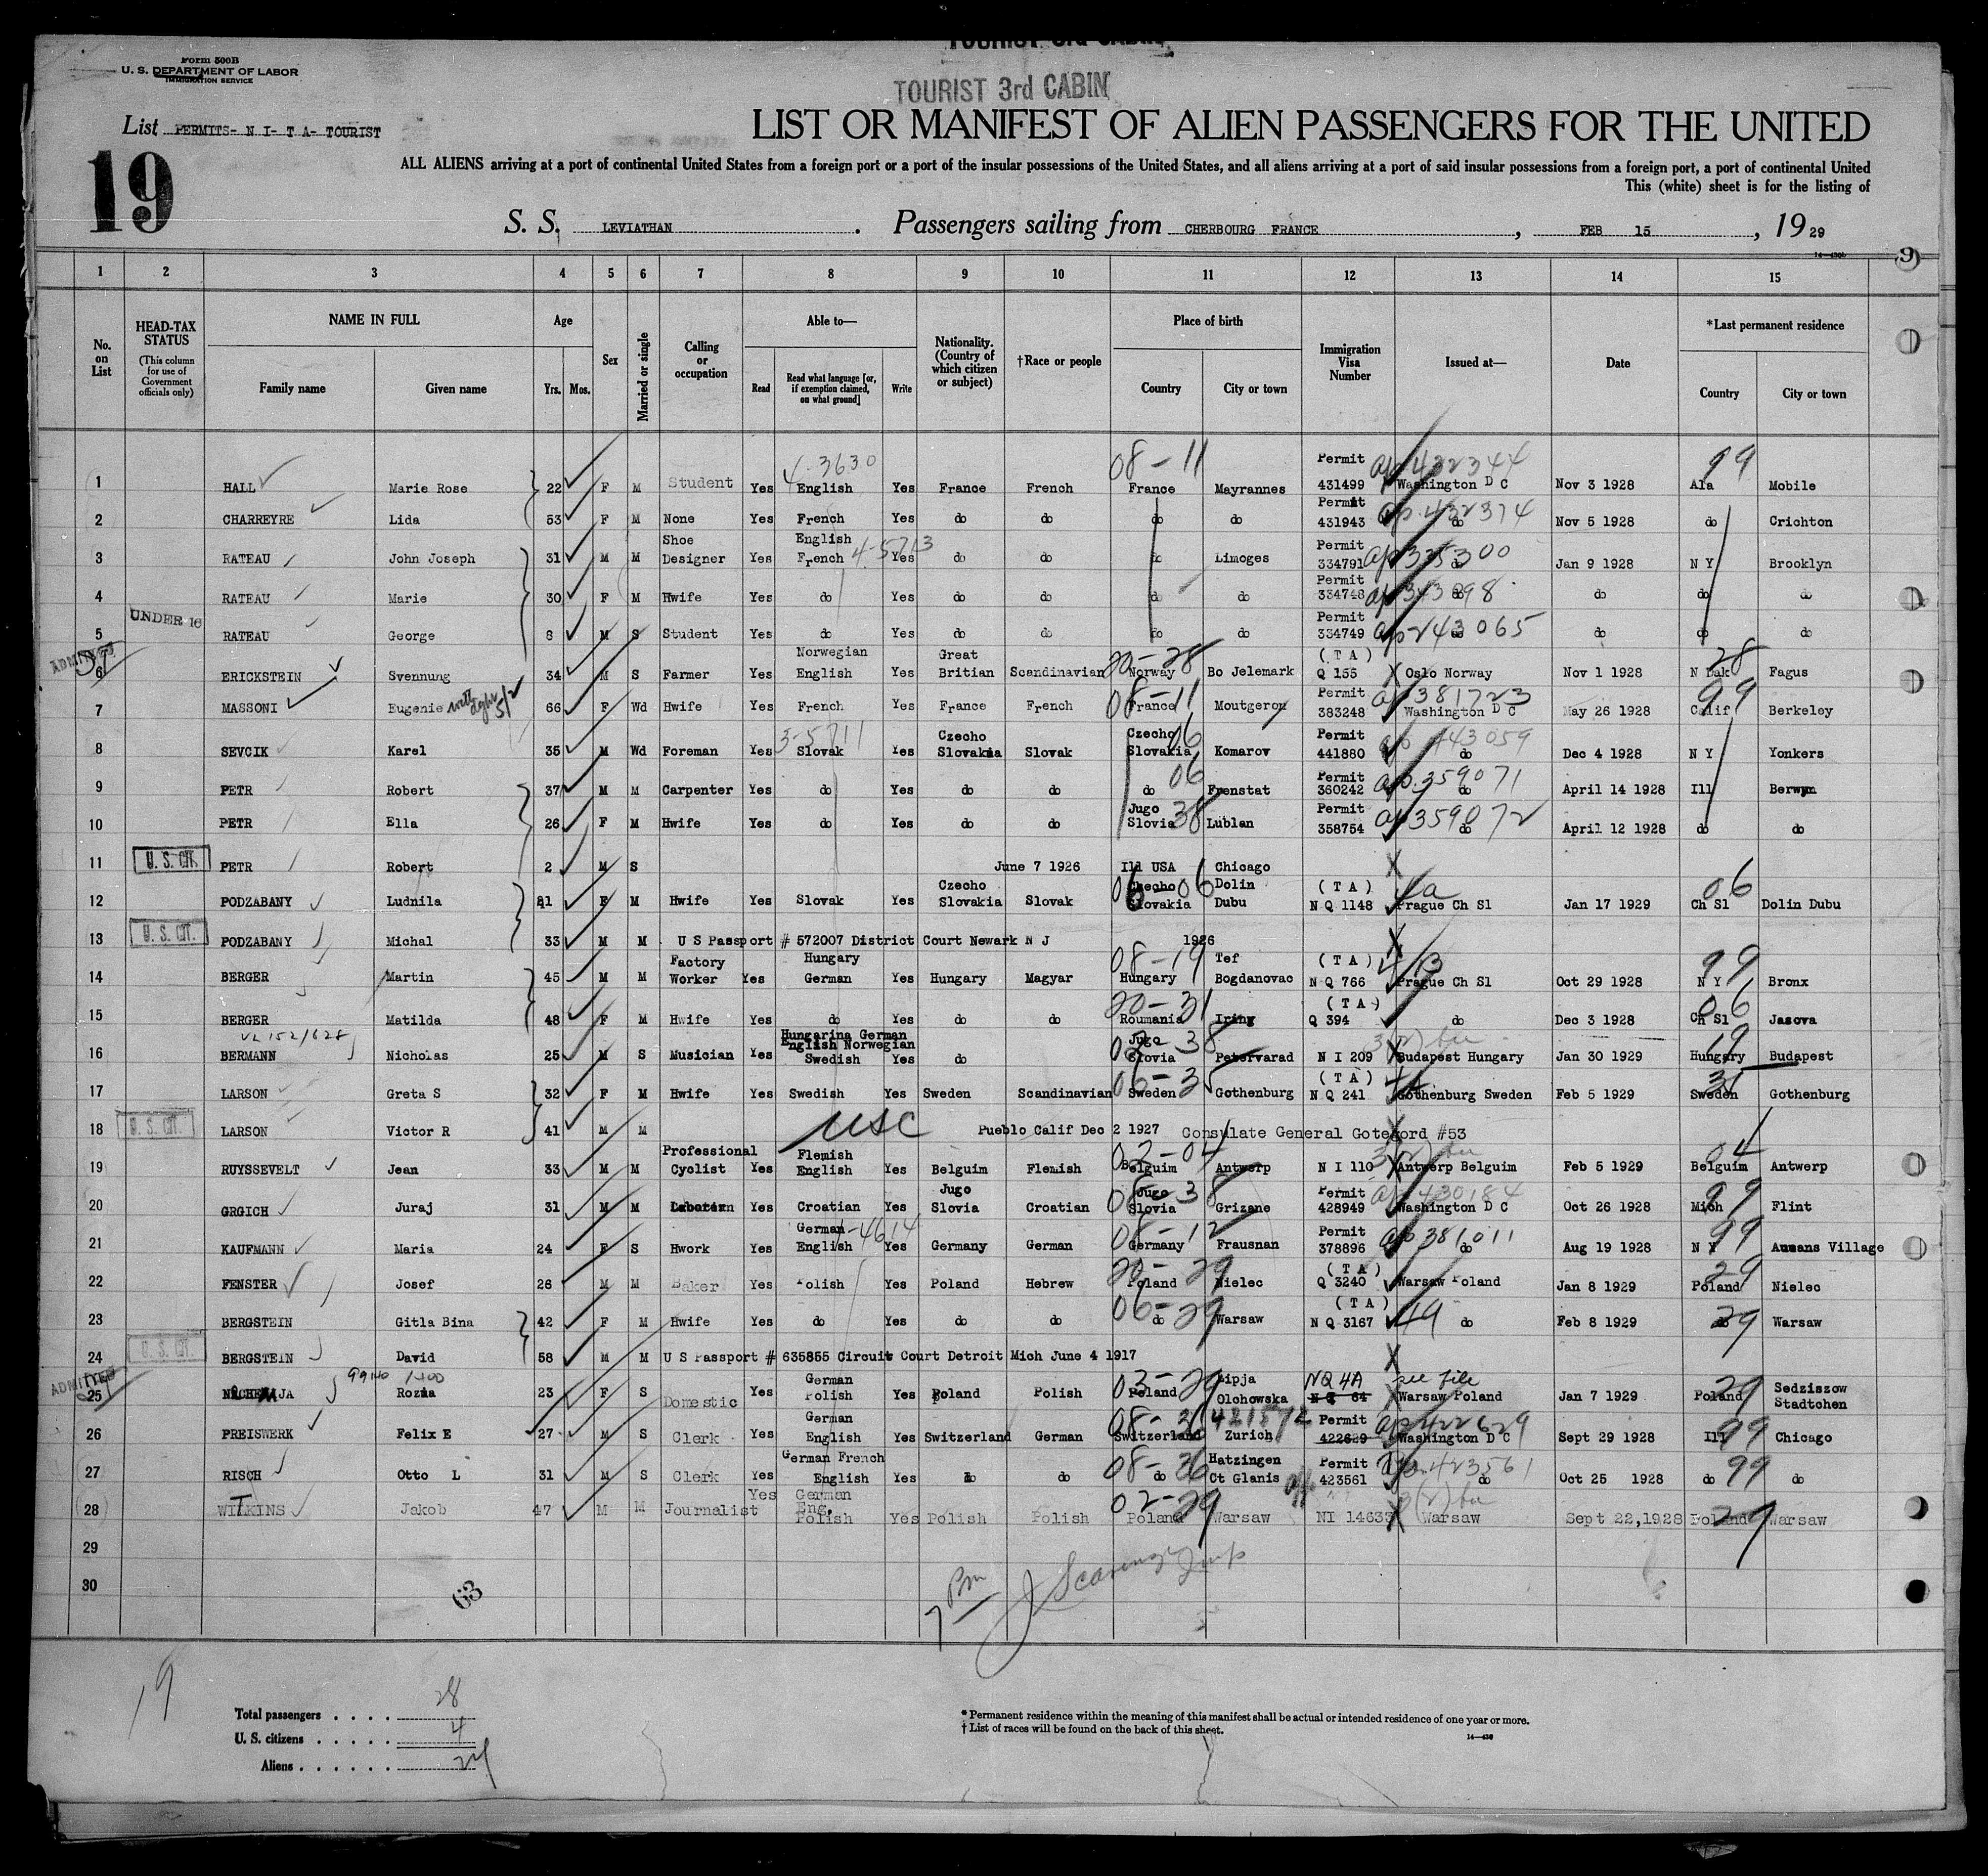 TOURIST 3rd CABIN
Form 500B
U. S. DEPARTMENT OF LABOR
IMMIGRATION SERVICE
TOURIST 3rd CABIN
List PERMITS- N I- T A- TOURIST
LIST OR MANIFEST OF ALIEN PASSENGERS FOR THE UNITED
19
ALL ALIENS arriving at a port of continental United States from a foreign port or a port of the insular possessions of the United States, and all aliens arriving at a port of said insular possessions from a foreign port, a port of continental United
This (white) sheet is for the listing of
S. S. LEVIATHAN . Passengers sailing from CHERBOURG FRANCE , FEB 15 , 19 29
14—430b
9
1 2 3 4 5 6 7 8 9 10 11 12 13 14 15
No. on List
HEAD-TAX STATUS (This column for use of Government officials only)
NAME IN FULL Family name Given name
Age Yrs. Mos.
Sex
Married or single
Calling or occupation
Able to— Read Read what language [or, if exemption claimed, on what ground] Write
Nationality. (Country of which citizen or subject)
†Race or people
Place of birth Country City or town
Immigration Visa Number
Issued at—
Date
*Last permanent residence Country City or town
4-3630 08-11 Permit ap 432344 99
1 HALL Marie Rose 22 F M Student Yes English Yes France French France Mayrannes 431499 Washington D C Nov 3 1928 Ala Mobile
Permit ap 432374
2 CHARREYRE Lida 53 F M None Yes French Yes do do do do 431943 do Nov 5 1928 do Crichton
Shoe English 4-5713 Permit ap 335300
3 RATEAU John Joseph 31 M M Designer Yes French Yes do do do Limoges 334791 do Jan 9 1928 N Y Brooklyn
Permit ap 343898
4 RATEAU Marie 30 F M Hwife Yes do Yes do do do do 334748 do do do do
UNDER 16 Permit ap 243065
5 RATEAU George 8 M S Student Yes do Yes do do do do 334749 do do do do
ADMITTED Norwegian Great 20-28 (TA) 28
6 ERICKSTEIN Svennung 34 M S Farmer Yes English Yes Britian Scandinavian Norway Bo Jelemark Q 155 Oslo Norway Nov 1 1928 N Dak Fagus
08-11 Permit ap 381723 99
7 MASSONI Eugenie 66 F Wd Hwife Yes French Yes France French France Moutgeron 383248 Washington D C May 26 1928 Calif Berkeley
3-5711 Czecho Czecho 06 Permit ap 443059
8 SEVCIK Karel 35 M Wd Foreman Yes Slovak Yes Slovakia Slovak Slovakia Komarov 441880 do Dec 4 1928 N Y Yonkers
06 Permit ap 359071
9 PETR Robert 37 M M Carpenter Yes do Yes do do do Frenstat 360242 do April 14 1928 Ill Berwyn
Jugo 38 Permit ap 359072
10 PETR Ella 26 F M Hwife Yes do Yes do do Slovia Lublan 358754 do April 12 1928 do do
11 U. S. CIT. PETR Robert 2 M S June 7 1926 Ill USA Chicago
Czecho Czecho 06 06 Dolin (TA) 4a 06
12 PODZABANY Ludnila 21 F M Hwife Yes Slovak Yes Slovakia Slovak Slovakia Dubu N Q 1148 Prague Ch Sl Jan 17 1929 Ch Sl Dolin Dubu
13 U. S. CIT. PODZABANY Michal 33 M M U S Passport # 572007 District Court Newark N J 1926
Factory Hungary 08-19 Tef (TA) 99
14 BERGER Martin 45 M M Worker Yes German Yes Hungary Magyar Hungary Bogdanovac N Q 766 Prague Ch Sl Oct 29 1928 N Y Bronx
20-31 (TA) 06
15 BERGER Matilda 48 F M Hwife Yes do Yes do do Roumania Iring Q 394 do Dec 3 1928 Ch Sl Jasova
Hungarina German English Norwegian Jugo 38 19
16 BERMANN Nicholas 25 M S Musician Yes Swedish Yes do Slovia Petervarad N I 209 Budapest Hungary Jan 30 1929 Hungary Budapest
06-35 (TA) 35
17 LARSON Greta S 32 F M Hwife Yes Swedish Yes Sweden Scandinavian Sweden Gothenburg N Q 241 Gothenburg Sweden Feb 5 1929 Sweden Gothenburg
18 U. S. CIT. LARSON Victor R 41 M M USC Pueblo Calif Dec 2 1927 Consulate General Gotegord #53
Professional Flemish 02-04 04
19 RUYSSEVELT Jean 33 M M Cyclist Yes English Yes Belguim Flemish Belguim Antwerp N I 110 Antwerp Belguim Feb 5 1929 Belguim Antwerp
Jugo Jugo 08-38 Permit ap 430184 99
20 GRGICH Juraj 31 M M Yes Croatian Yes Slovia Croatian Slovia Grizane 428949 Washington D C Oct 26 1928 Mich Flint
German 4-4614 08-12 Permit ap 381011 99
21 KAUFMANN Maria 24 F S Hwork Yes English Yes Germany German Germany Frausnan 378896 do Aug 19 1928 N Y Village
20-29 (TA) 29
22 FENSTER Josef 26 M M Baker Yes Polish Yes Poland Hebrew Poland Nielec Q 3240 Warsaw Poland Jan 8 1929 Poland Nielec
06-29 (TA) 49 29
23 BERGSTEIN Gitla Bina 42 F M Hwife Yes do Yes do do do Warsaw N Q 3167 do Feb 8 1929 do Warsaw
24 U. S. CIT. BERGSTEIN David 58 M M U S Passport # 635855 Circuit Court Detroit Mich June 4 1917
ADMITTED German 03-29 Lipja NQ 4A see file 29 Sedziszow
25 Rozia 23 F S Domestic Yes Polish Yes Poland Polish Poland Olchowska 64 Warsaw Poland Jan 7 1929 Poland Stadtchen
German 08-36 421572 Permit ap 422629 99
26 PREISWERK Felix E 27 M S Clerk Yes English Yes Switzerland German Switzerland Zurich 422629 Washington D C Sept 29 1928 Ill Chicago
German French 08-36 Hatzingen Permit ap 423561 99
27 RISCH Otto L 31 M S Clerk Yes English Yes do do do Ct Glanis 423561 do Oct 25 1928 do do
Yes German Eng. 02-29 29
28 Jakob 47 M M Journalist Polish Yes Polish Polish Poland Warsaw NI 14633 Warsaw Sept 22,1928 Poland Warsaw
29
30
63
7 Pm
19
Total passengers . . . . 28
U. S. citizens . . . . . 4
Aliens . . . . . . 24
* Permanent residence within the meaning of this manifest shall be actual or intended residence of one year or more.
† List of races will be found on the back of this sheet.
14—430